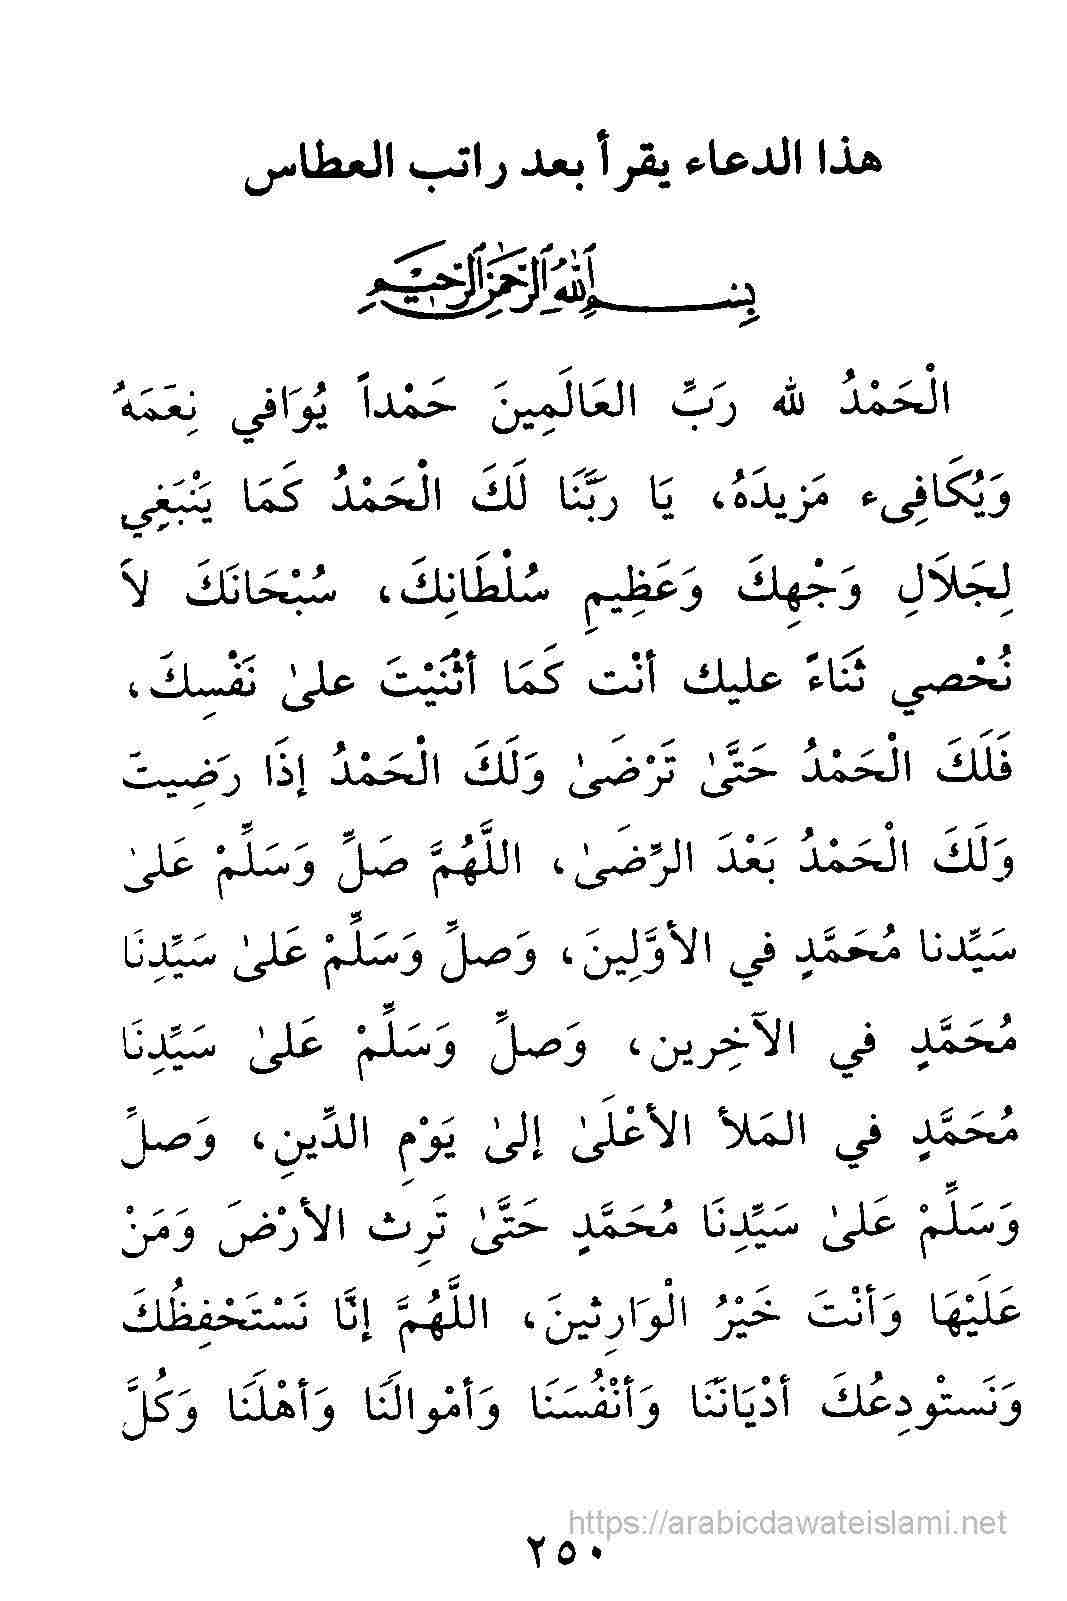 هذا الدعاء يقرأ بعد راتب العطاس
بِسْمِ اللهِ الرَّحْمٰنِ الرَّحِيْمِ
الْحَمْدُ لله رَبِّ العَالَمِينَ حَمْداً يُوَافي نِعَمَهُ
وَيُكَافِىء مَزيدَهُ، يَا رَبَّنَا لَكَ الْحَمْدُ كَمَا يَنْبَغِي
لِجَلاَلِ وَجْهِكَ وَعَظِيمِ سُلْطَانِكَ، سُبْحَانَكَ لاَ
نُحْصي ثَنَاءً عليك أنْت كَمَا أثْنَيْتَ علىٰ نَفْسِكَ،
فَلَكَ الْحَمْدُ حَتَّىٰ تَرْضَىٰ وَلَكَ الْحَمْدُ إذَا رَضِيتَ
وَلَكَ الْحَمْدُ بَعْدَ الرِّضَىٰ، اللَّهُمَّ صَلِّ وَسَلِّمْ عَلىٰ
سَيِّدنا مُحَمَّدٍ في الأوَّلِينَ، وَصلِّ وَسَلِّمْ عَلىٰ سَيِّدِنَا
مُحَمَّدٍ في الآخِرين، وَصلِّ وَسَلِّمْ عَلىٰ سَيِّدِنَا
مُحَمَّدٍ في المَلأ الأعْلَىٰ إلىٰ يَوْمِ الدِّينِ، وَصلِّ
وَسَلِّمْ عَلىٰ سَيِّدِنَا مُحَمَّدٍ حَتَّىٰ تَرِث الأرْضَ وَمَنْ
عَلَيْهَا وَأنْتَ خَيْرُ الْوَارِثينَ، اللَّهُمَّ إنَّا نَسْتَحْفِظُكَ
وَنَستْودِعُكَ أدْيَانَنَا وَأنْفُسَنَا وَأمْوالَنَا وَأهْلَنَا وَكُلَّ
https://arabicdawateislami.net
٢٥٠